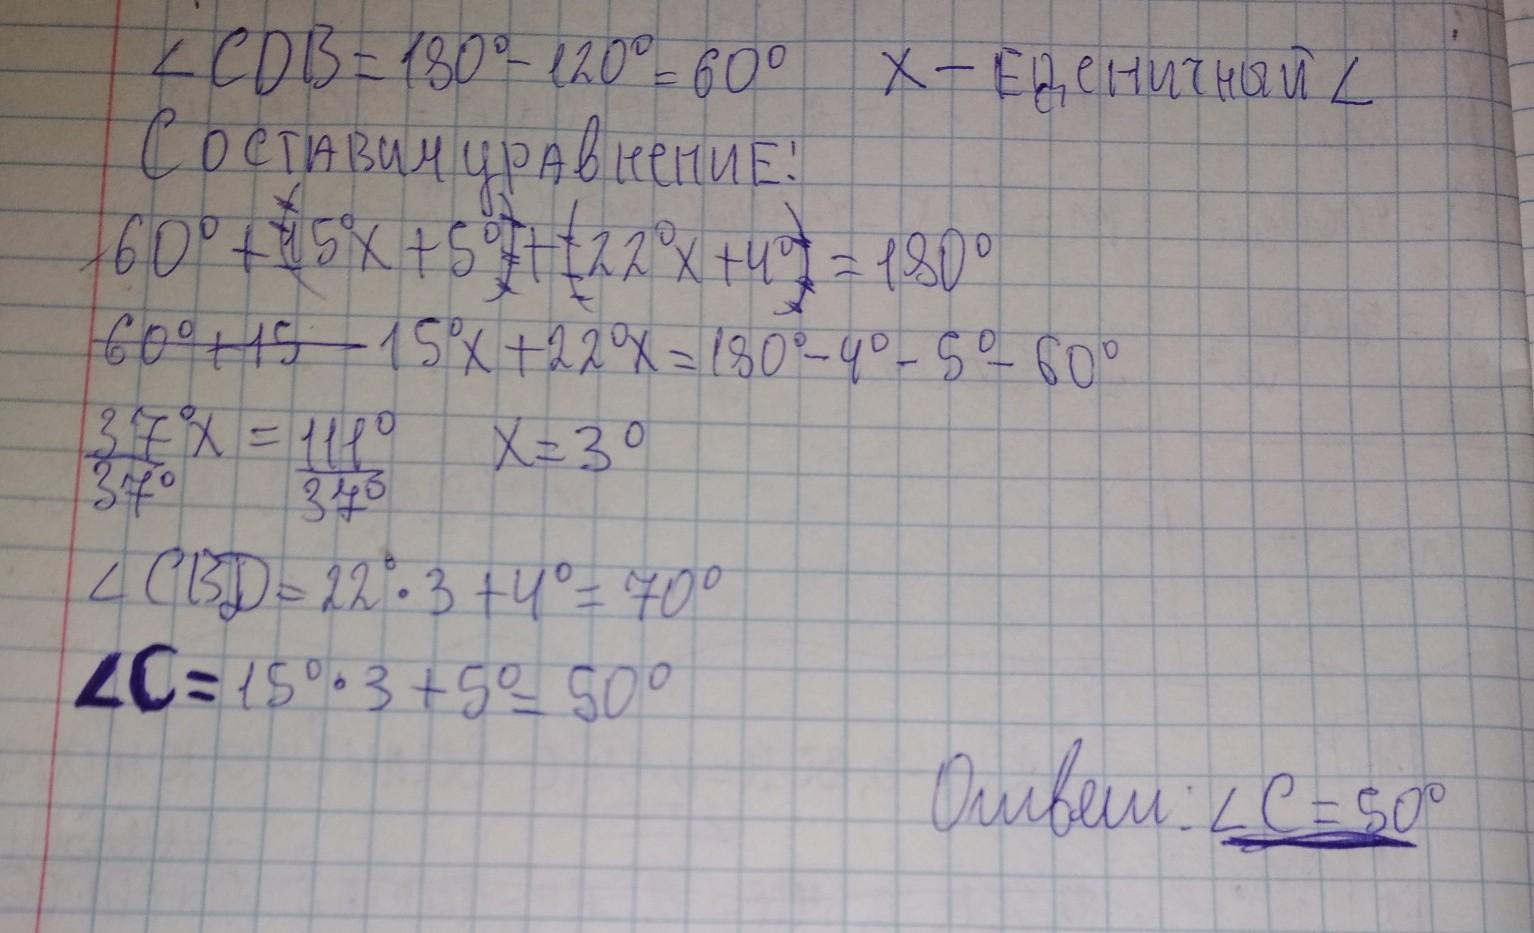 ∠CDB = 180° - 120° = 60° X - ЕДЕНИЧНЫЙ ∠
СОСТАВИМ УРАВНЕНИЕ:
60° + 15°X + 5° + 22°X + 4° = 180°
60° + 15 15°X + 22°X = 180° - 4° - 5° - 60°
37°X/37° = 111°/37° X = 3°
∠CBD = 22° · 3 + 4° = 70°
∠C = 15° · 3 + 5° = 50°
Ответ: ∠C = 50°